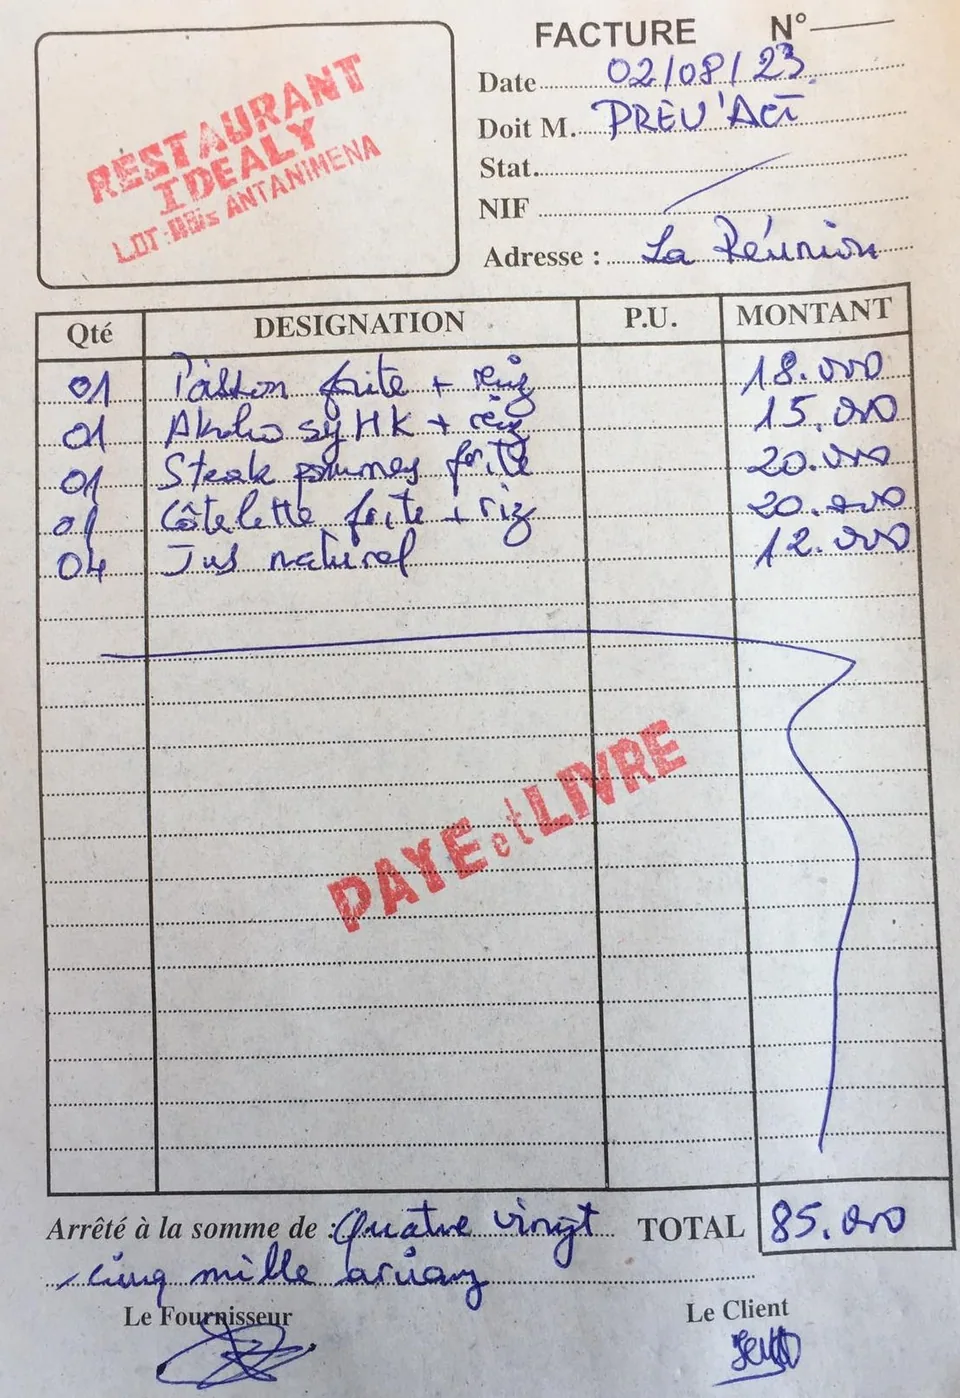 RESTAURANT
IDEALY
LOT: ANTANIMENA
FACTURE N°
Date 02/08/23
Doit M. PREV'ACT
Stat.
NIF
Adresse : La Réunion
Qté DESIGNATION P.U. MONTANT
01 Poisson frite + riz 18.000
01 Akoho sy HK + riz 15.000
01 Steak pommes frite 20.000
01 Côtelette frite + riz 20.000
04 Jus naturel 12.000
PAYE et LIVRE
Arrêté à la somme de : Quatre vingt TOTAL 85.000
cinq mille ariary
Le Fournisseur Le Client